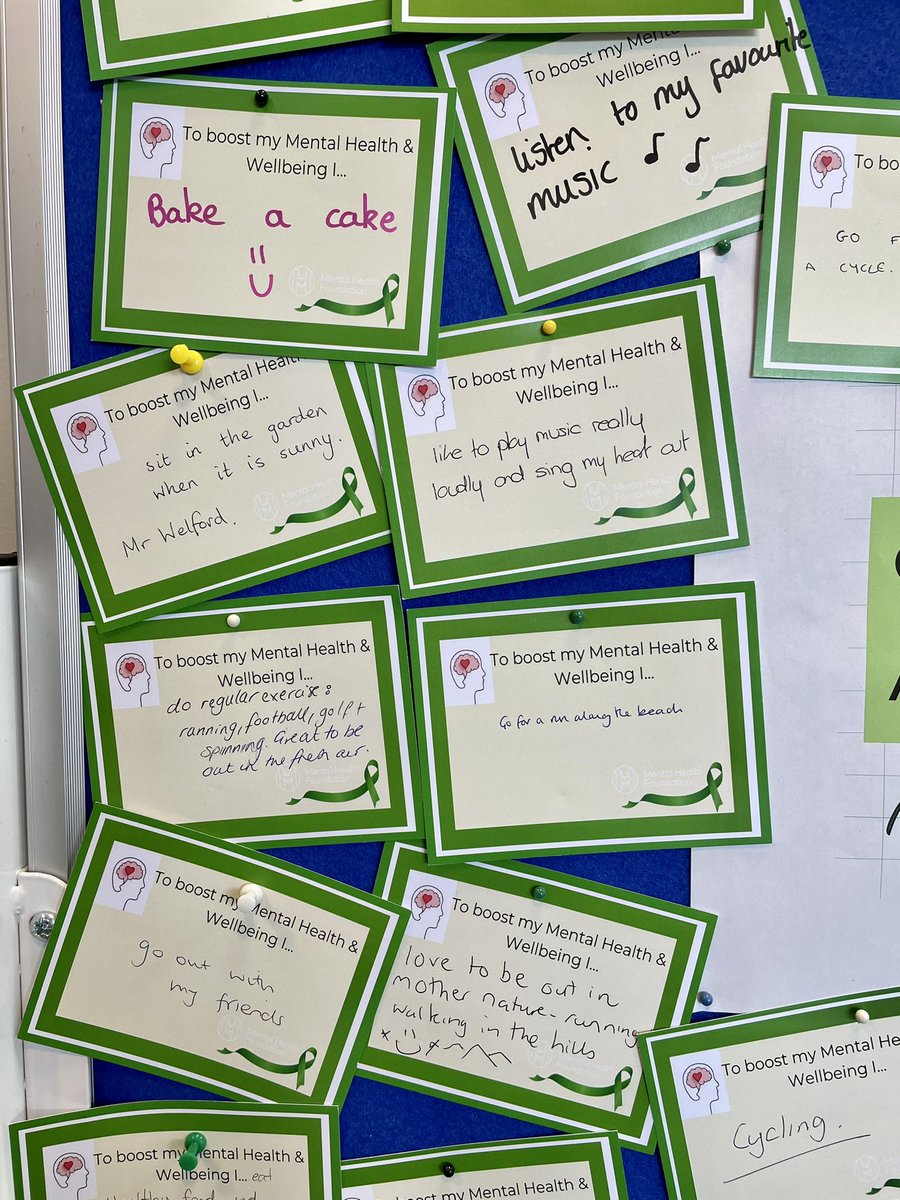 To boost my Mental Health &
Wellbeing I...
Bake a cake
Mental Health
Foundation
To boost my Mental
Wellbeing I...
listen to my favourite
music
Mental Health
Foundation
To bo
GO F
A CYCLE.
To boost my Mental Health
Wellbeing I...
sit in the garden
when it is sunny.
Mr Welford.
Mental Health
Foundation
To boost my Mental Health &
Wellbeing I...
like to play music really
loudly and sing my heart out
Mental Health
Foundation
To boost my Mental Health &
Wellbeing I...
do regular exercise:
running, football, golf +
spinning. Great to be
out in the fresh air.
Mental Health
Foundation
To boost my Mental Health &
Wellbeing I...
Go for a run along the beach
Mental Health
Foundation
To boost my Mental Health &
Wellbeing I...
go out with
my friends
To boost my Mental Health &
Wellbeing I...
love to be out in
mother nature - running
walking in the hills
To boost my Mental Hea
Wellbeing I...
Cycling.
To boost my Mental Health &
Wellbeing I... eat
To boost my Mental Health &